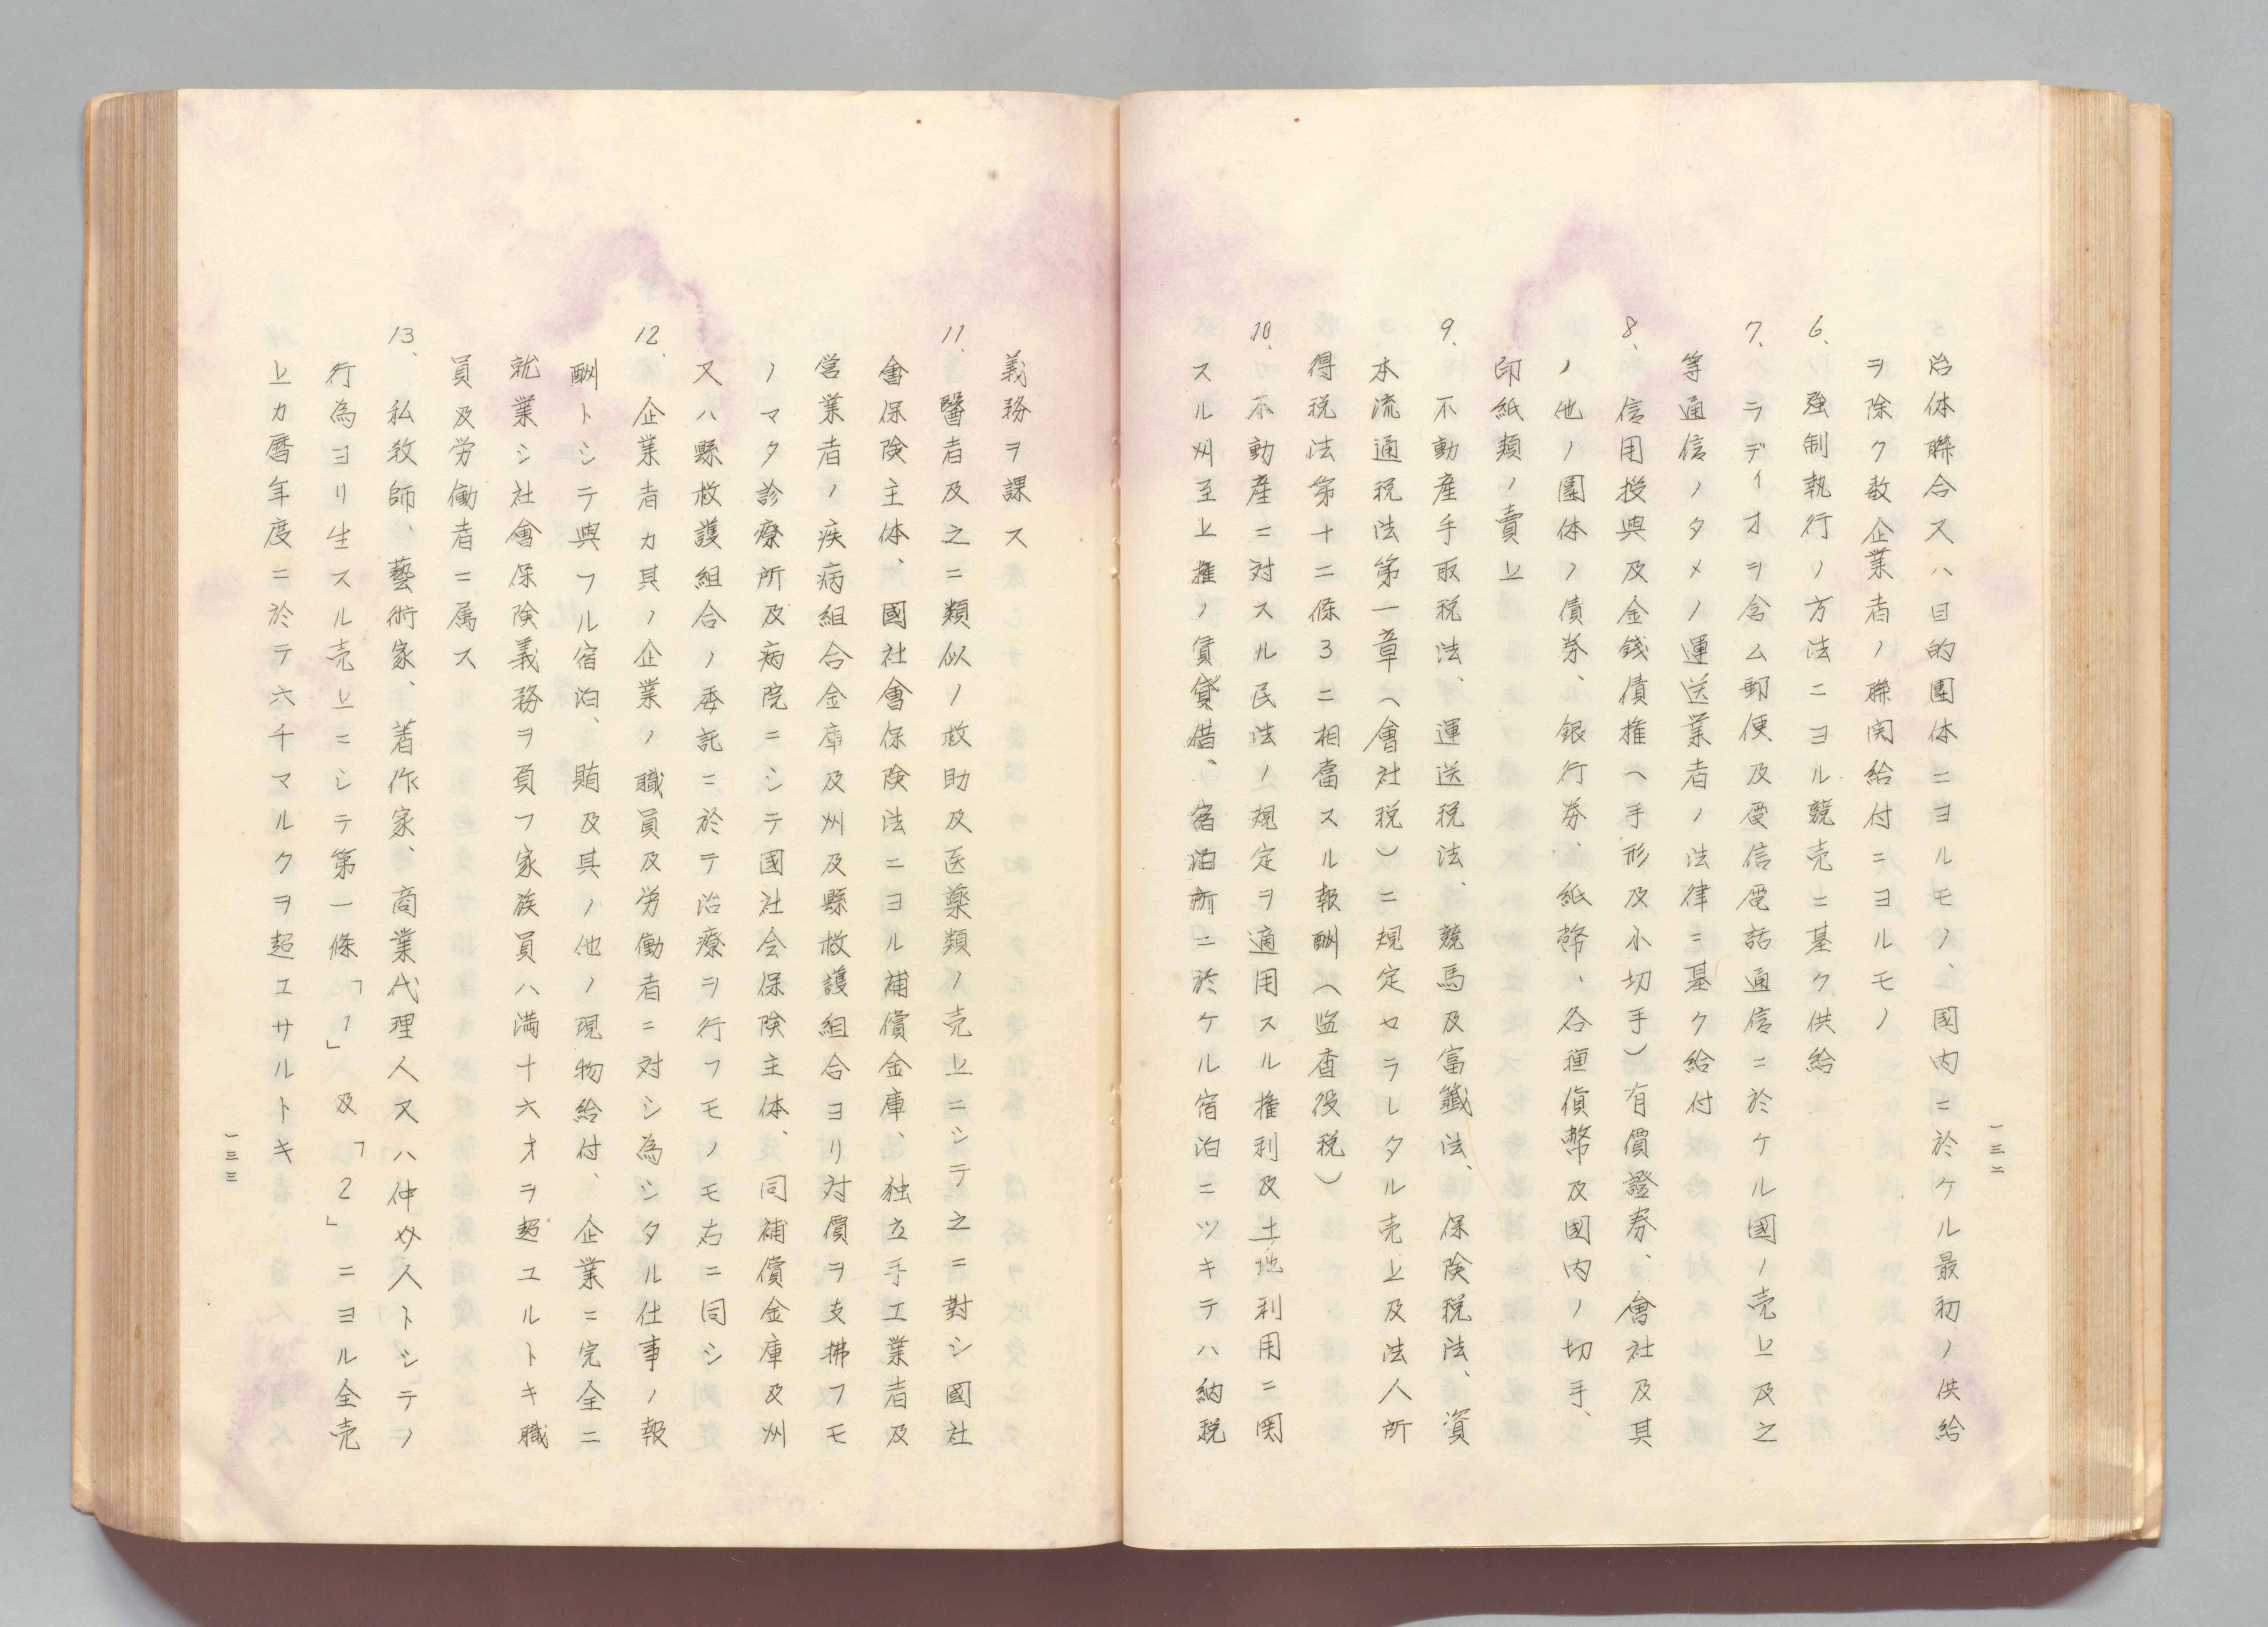 治体聯合又ハ目的團体ニヨルモノ、國内ニ於ケル最初ノ供給
ヲ除ク数企業者ノ聯関給付ニヨルモノ
6、強制執行ノ方法ニヨル競売ニ基ク供給
7、ラディオヲ含ム郵便及電信電話通信ニ於ケル國ノ売上及之
等通信ノタメノ運送業者ノ法律ニ基ク給付
8、信用授與及金錢債権(手形及小切手)有價證券、會社及其
ノ他ノ團体ノ債券、銀行券、紙幣、各種貨幣及國内ノ切手、
印紙類ノ賣上
9、不動産手取税法、運送税法、競馬及富籤法、保険税法、資
本流通税法第一章(會社税)ニ規定セラレタル売上及法人所
得税法第十二條3ニ相當スル報酬(監査役税)
10、不動産ニ対スル民法ノ規定ヲ適用スル権利及土地利用ニ関
スル州至上権ノ賃貸借、宿泊所ニ於ケル宿泊ニツキテハ納税
一三二
義務ヲ課ス
11、醫者及之ニ類似ノ救助及医藥類ノ売上ニシテ之ニ對シ國社
會保険主体、國社會保険法ニヨル補償金庫、独立手工業者及
営業者ノ疾病組合金庫及州及縣救護組合ヨリ対價ヲ支拂フモ
ノマタ診療所及病院ニシテ國社会保険主体、同補償金庫及州
又ハ縣救護組合ノ委託ニ於テ治療ヲ行フモノモ右ニ同シ
12、企業者カ其ノ企業ノ職員及労働者ニ対シ為シタル仕事ノ報
酬トシテ與フル宿泊、賄及其ノ他ノ現物給付、企業ニ完全ニ
就業シ社會保険義務ヲ負フ家族員ハ満十六才ヲ超ユルトキ職
員及労働者ニ属ス
13、私教師、藝術家、著作家、商業代理人又ハ仲介人トシテノ
行為ヨリ生スル売上ニシテ第一條「1」及「2」ニヨル全売
上カ暦年度ニ於テ六千マルクヲ超エサルトキ
一三三